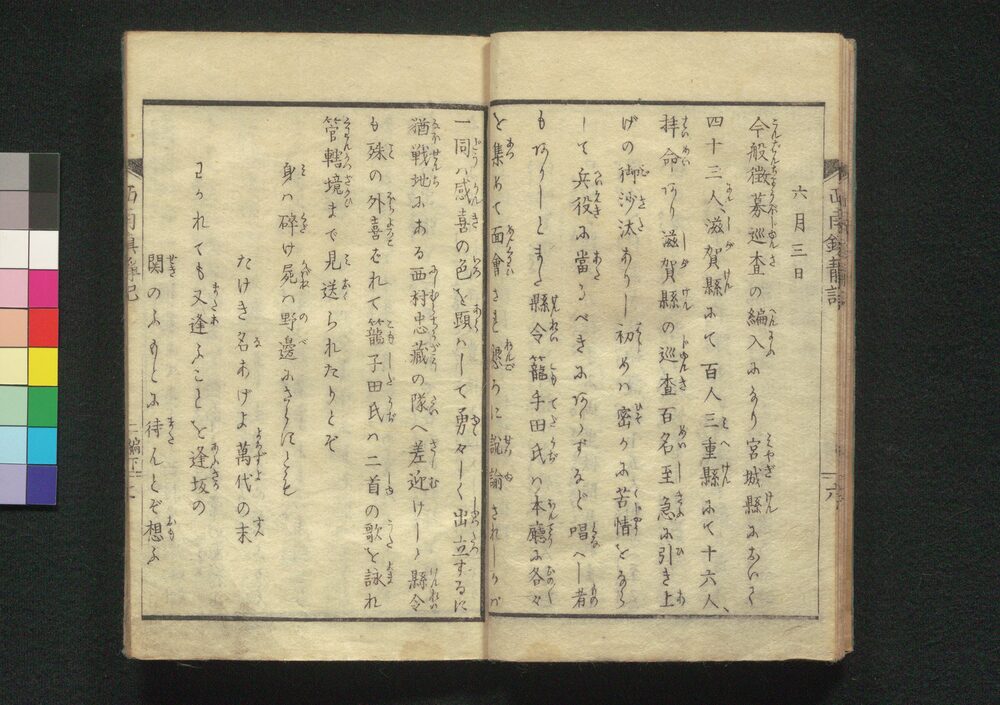 六月三日
今般徴募巡査の編入になり宮城縣において
四十三人、滋賀縣にて百人三重縣にて十六人、
拝命あり滋賀縣の巡査百名至急に引き上
げの御沙汰ありし初めハ密かに苦情をなら
して兵役に當るべきにあらずなど唱へし者
もありしとまた縣令籠手田氏ハ本廳に各々
を集めて面會さを懇ろに説諭されしかバ
一同ハ感喜の色を顕ハして勇々しく出立するに
猶戦地にある西村忠藏の隊へ差迎けしハ縣令
も殊の外喜ばれて籠子田氏ハ二首の歌を詠れ
管轄境まで見送られたりとぞ
身ハ砕け屍ハ野邊にさらすとも
たけき名あげよ萬代の末
わかれても又逢ふことを逢坂の
関のふもとに待んとぞ想ふ